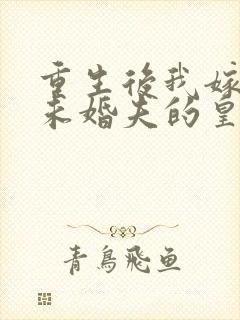 重生後我嫁
未婚夫的皇
青鳥飛魚